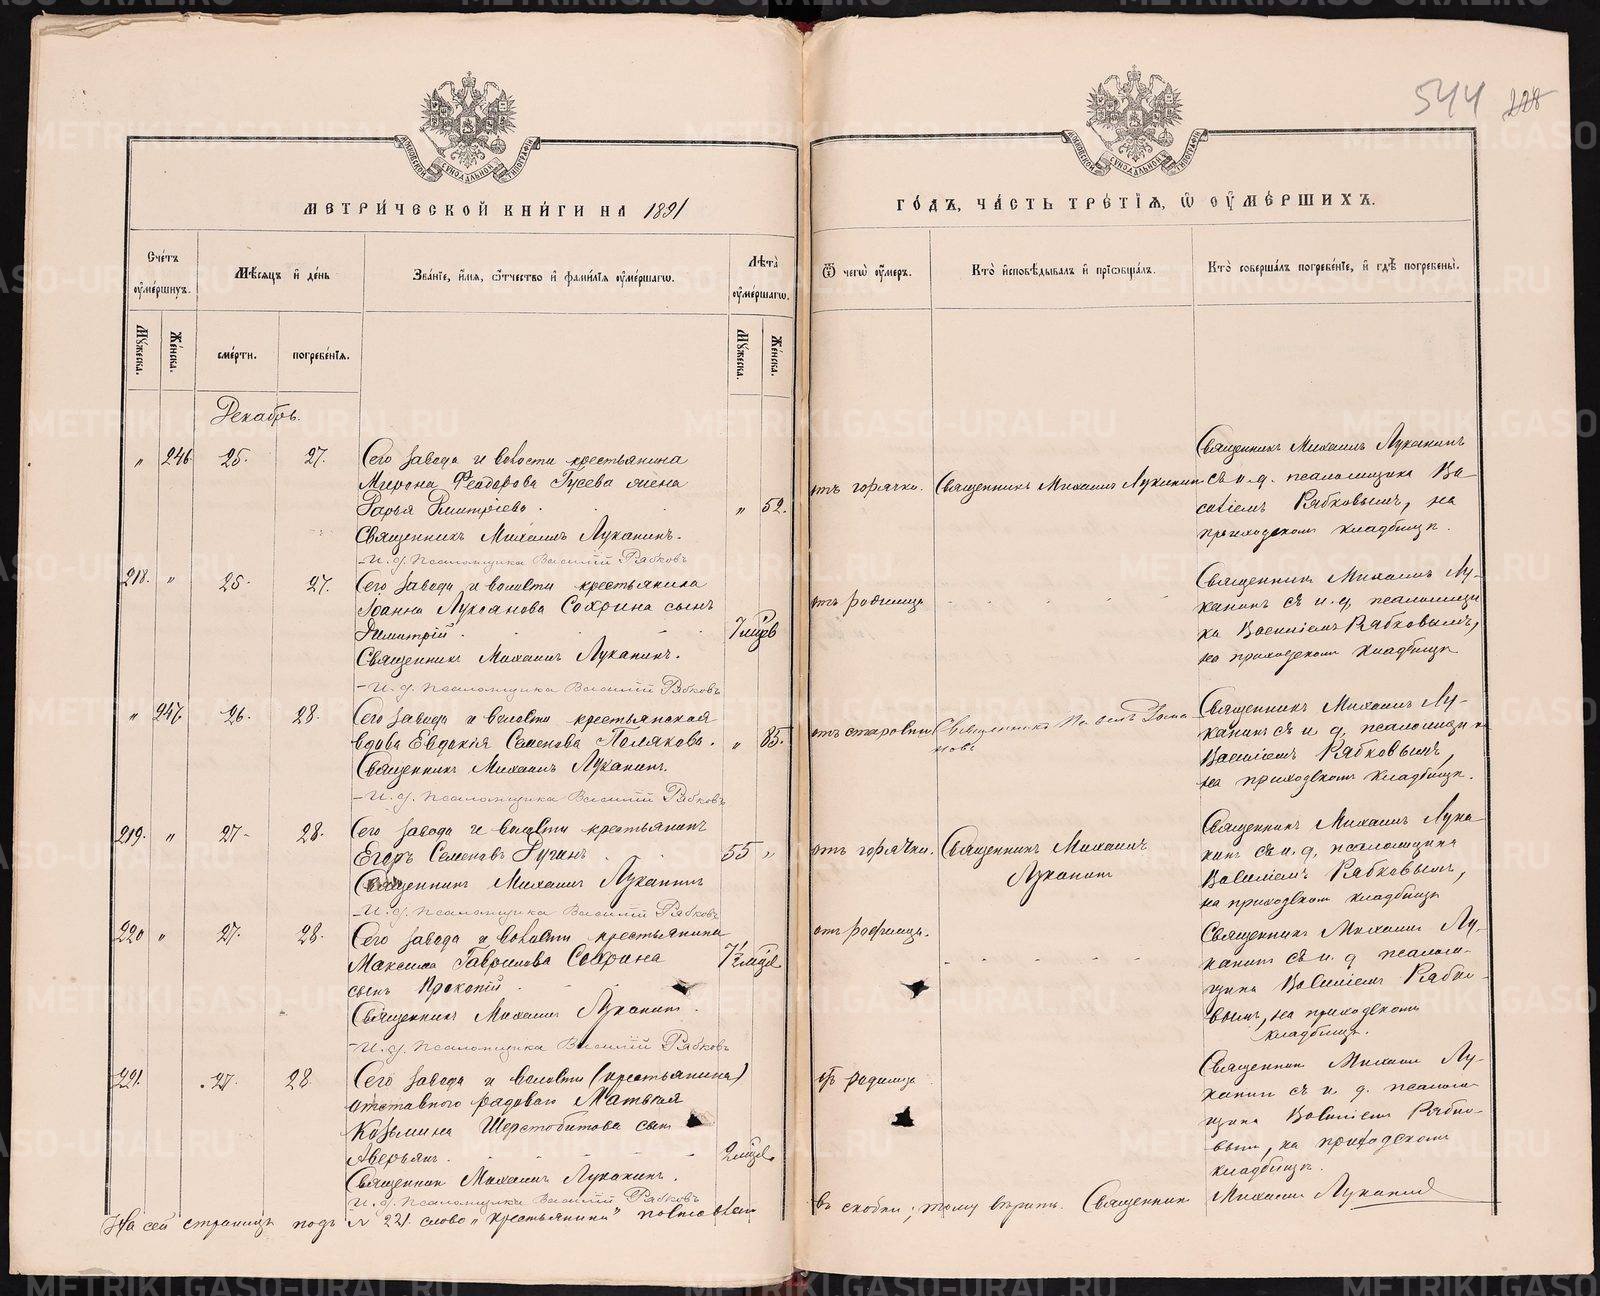 544 228
МЕТРИ́ЧЕСКОЙ КНИ́ГИ НА 1891
ГО́ДЪ, ЧА́СТЬ ТРЕ́ТІѦ, Ѡ҆ ОУ҆МЕ́РШИХЪ.
Сче́тъ оу҆ме́ршихъ.
Мѣ́сѧцъ и҆ де́нь
Зва́нїе, и҆́мѧ, ѻ҆́тчество и҆ фами́лїѧ оу҆ме́ршагѡ.
Лѣ́та оу҆ме́ршагѡ.
Ѿ чегѡ̀ оу҆́меръ.
Кто̀ и҆сповѣ́дывалъ и҆ прїѡбща́лъ.
Кто̀ соверша́лъ погребе́нїе, и҆ гдѣ̀ погребены̀.
Мꙋ́жеска.
Же́нска.
сме́рти.
погребе́нїѧ.
Мꙋ́жеска.
Же́нска.
Декабрь.
„ 246 25. 27.
Сего завода и волости крестьянина
Мирона Феодорова Гусева жена
Дарья Димитріева.
„ 52.
Священникъ Михаилъ Луканинъ.
И. д. псаломщика Василій Рябковъ
отъ горячки.
Священникъ Михаилъ Луканинъ
Священникъ Михаилъ Луканинъ
съ и. д. псаломщика Ва-
силіемъ Рябковымъ, на
приходскомъ кладбищѣ.
218. „ 25. 27.
Сего завода и волости крестьянина
Іоанна Лукіанова Сохрина сынъ
Димитрій.
7 мцев
Священникъ Михаилъ Луканинъ.
И. д. псаломщика Василій Рябковъ
отъ родимца
Священникъ Михаилъ Лу-
канинъ съ и. д. псаломщи
ка Василіемъ Рябковымъ,
на приходскомъ кладбищѣ
„ 247 26. 28.
Сего завода и волости крестьянская
вдова Евдокія Семенова Полякова.
„ 85.
Священникъ Михаилъ Луканинъ.
И. д. псаломщика Василій Рябковъ
отъ старости
Священникъ
новъ
Священникъ Михаилъ Лу-
канинъ съ и. д. псаломщика
Василіемъ Рябковымъ,
на приходскомъ кладбищѣ.
219. „ 27. 28.
Сего завода и волости крестьянинъ
Егоръ Семеновъ
55 „
Священникъ Михаилъ Луканинъ
И. д. псаломщика Василій Рябковъ
отъ горячки.
Священникъ Михаилъ
Луканинъ
Священникъ Михаилъ Лука
нинъ съ и. д. псаломщика
Василіемъ Рябковымъ,
на приходскомъ кладбищѣ
220 „ 27. 28.
Сего завода и волости крестьянина
Максима Гаврилова Сохрина
сынъ Прокопій.
Священникъ Михаилъ Луканинъ.
И. д. псаломщика Василій Рябковъ
отъ родимца.
Священникъ Михаилъ Лу-
канинъ съ и. д. псалом-
щика Василіемъ Рябко-
вымъ, на приходскомъ
кладбищѣ.
221. 27. 28.
Сего завода и волости (крестьянина)
отставного рядоваго Матвѣя
Козьмина Шерстобитова сынъ
Аверьянъ.
2 мцев
Священникъ Михаилъ Луканинъ.
И. д. псаломщика Василій Рябковъ
отъ родимца
Священникъ Михаилъ Лу-
канинъ съ и. д. псалом-
щика Василіемъ Рябко-
вымъ, на приходскомъ
кладбищѣ.
На сей страницѣ подъ № 221 слово „крестьянина" поставлен
въ скобки; тому вѣрить. Священникъ Михаилъ Луканинъ
METRIKI.GASO-URAL.RU